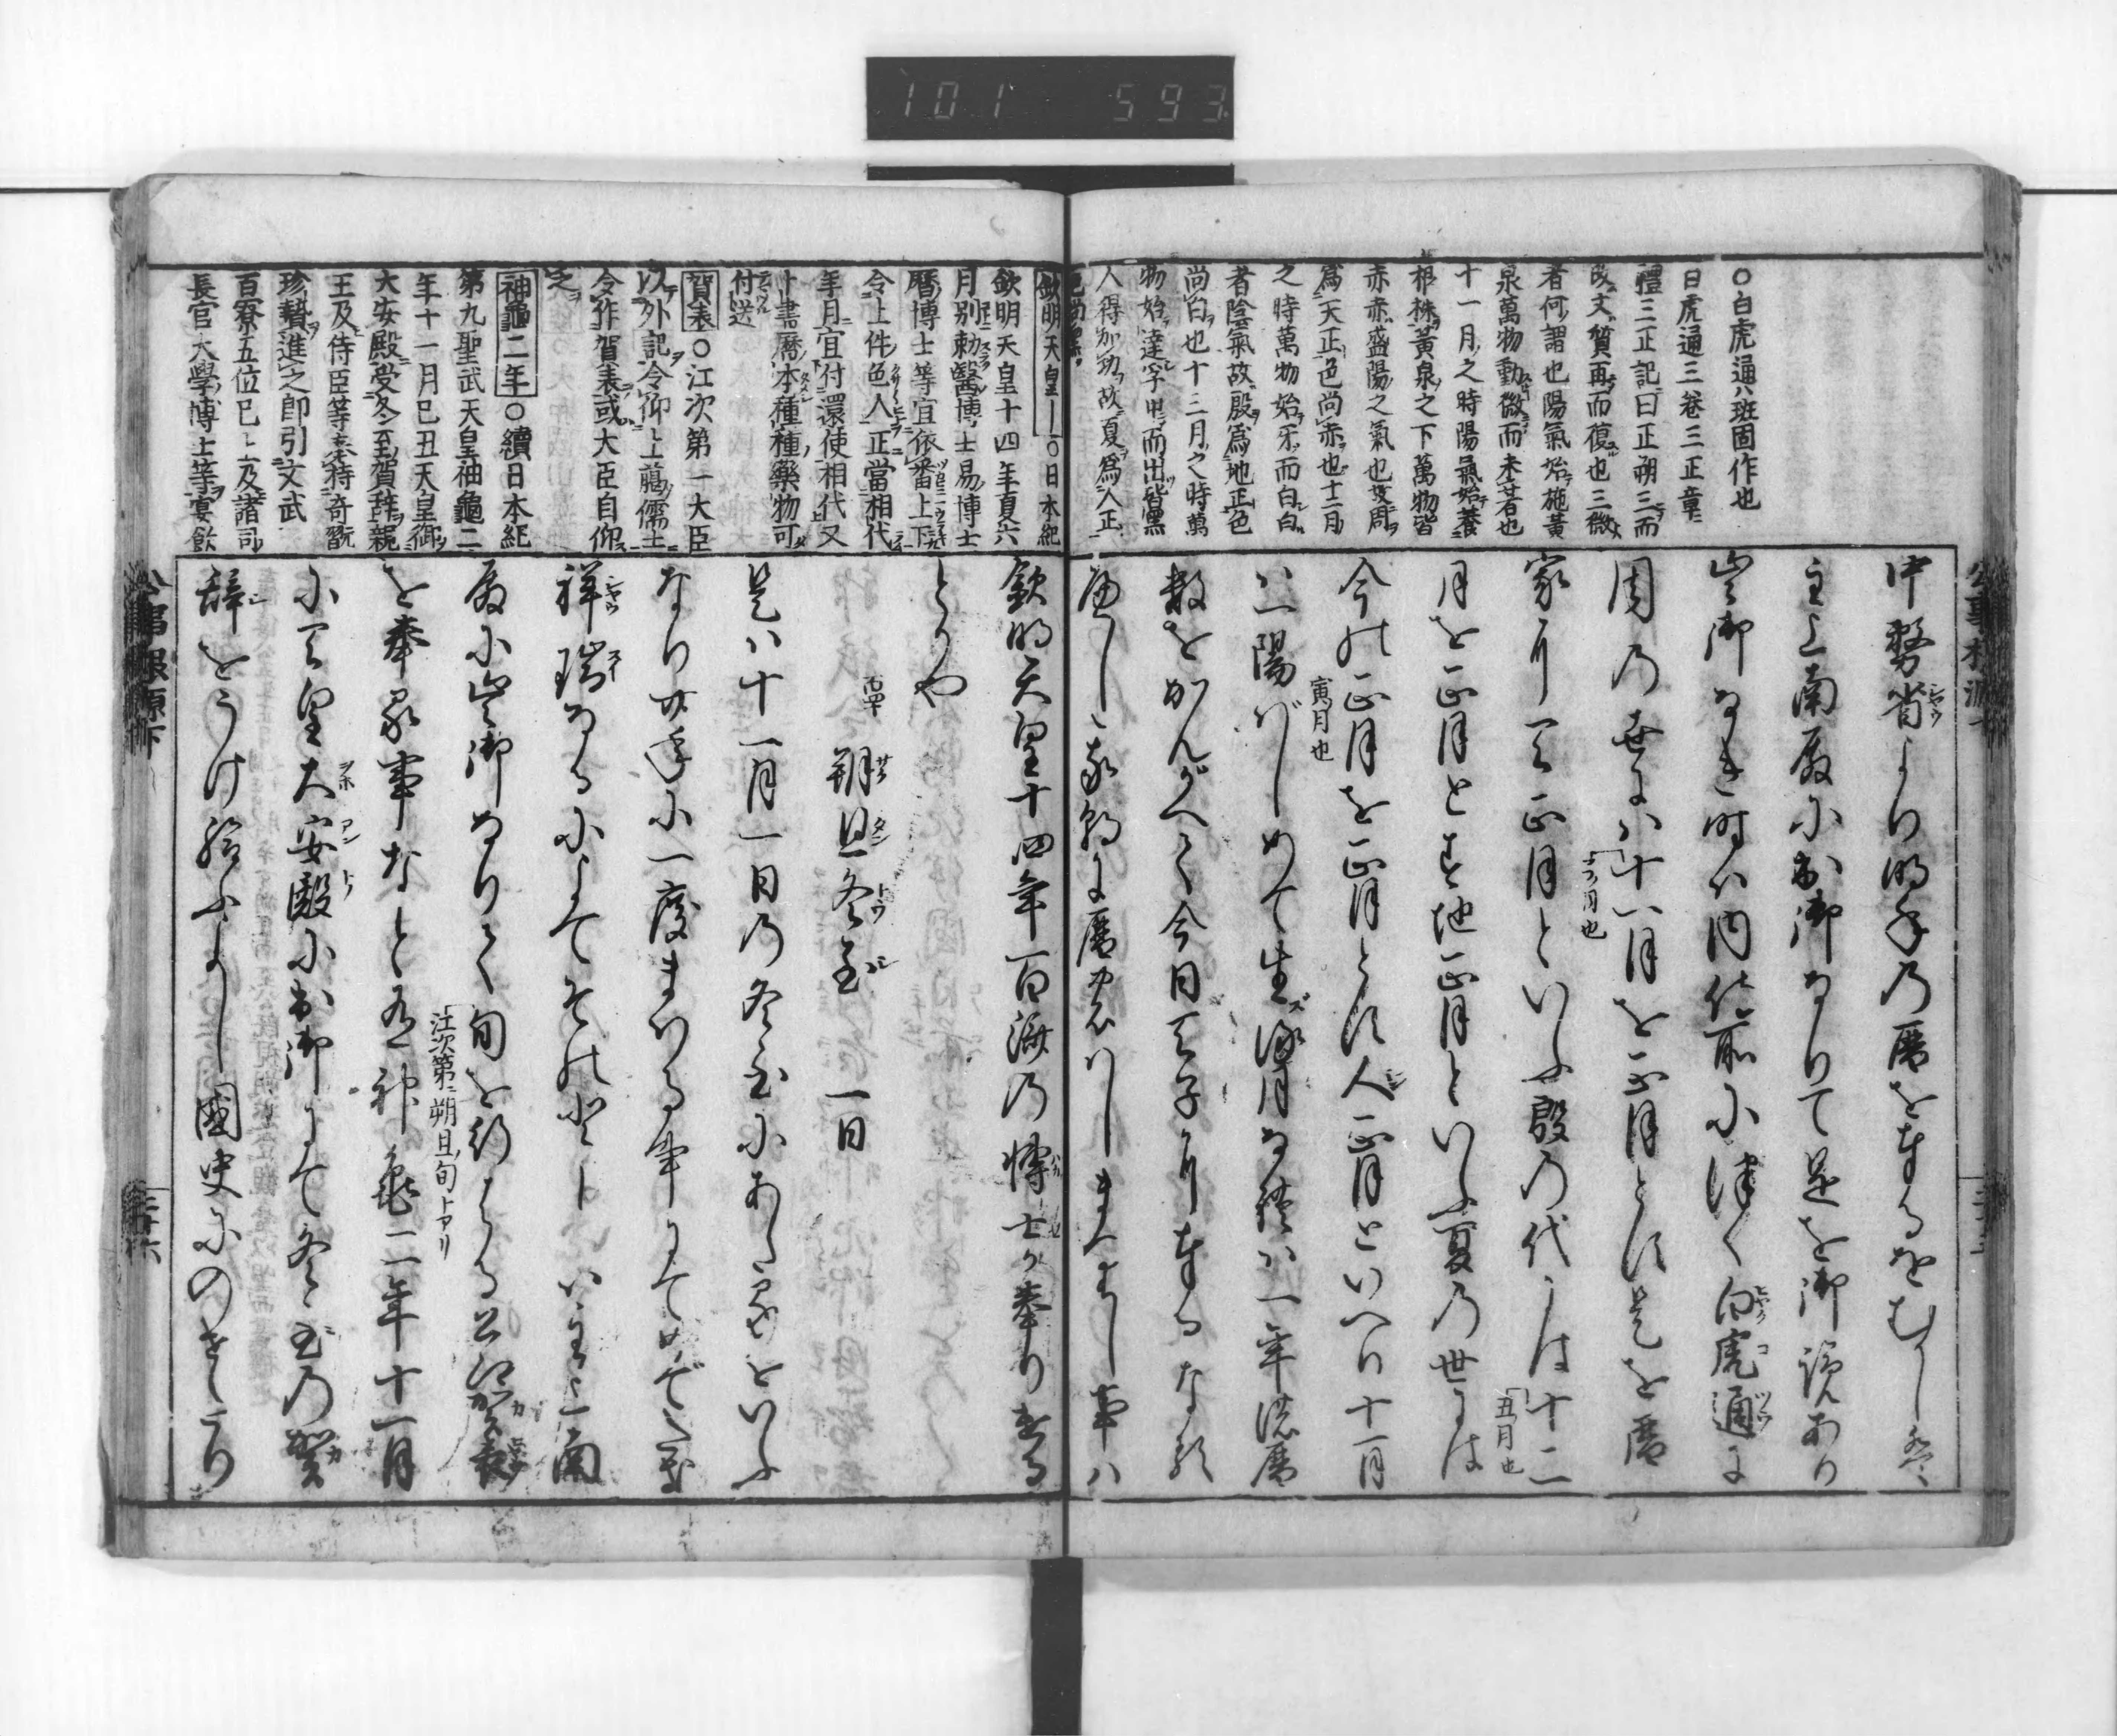 101 593
公事根源下
○白虎通ハ班固作也
曰虎通三巻三正章
禮三正記曰正朔三而
改文質再而復也三微
者何謂也陽氣始施黄
泉萬物動微而未著也
十一月之時陽氣始養
根株黄泉之下萬物皆
赤赤盛陽之氣也故周
為天正色尚赤也十二月
之時萬物始牙而白白
者陰氣故殷為地正色
尚白也十三月之時萬
物始達孚甲而出皆黒
人得加功故夏為人正
色尚黒
中務省より明年の暦を奉るをむかしは
主上南殿に出御なりて是を御覧あり
出御なき時は内侍所に津く白虎通に
周の世には十一月を正月とす是を
子ノ月也
家に天正月といふ殷の代には十二
丑月也
月を正月とし地正月といふ夏の世には
今の正月を正月とす人正月といへり十一月
寅月也
は一陽はじめて生ずる月なれば一年の暦
数をかんがへて今日天子に奉るなるべし
我朝に暦のはじまりし事は
欽明天皇○日本紀
欽明天皇十四年夏六
月別勅醫博士易博士
暦博士等宜依番上下
令上件色人正當相代
年月宜付還使相代又
卜書暦本種種藥物可
付送
賀表○江次第一大臣
以外記令仰上﨟儒士
令作賀表或大臣自仰
之
神龜二年○續日本紀
第九聖武天皇神龜二
年十一月己丑天皇御
大安殿受冬至賀辞親
王及侍臣等奉持奇翫
珍贄進之即引文武
百寮五位已上及諸司
長官大學博士等宴飲
欽明天皇十四年百濟の博士が奉りける
とかや
丙申
朔旦冬至 一日
是は十一月一日の冬至にあたるをいふ
なり廿年に一度まはる事にてめでたき
祥瑞なるによてその日は主上南
殿に出御なりて旬を行はる公卿賀表
江次第ニ朔旦旬トアリ
を奉る事などあり神龜二年十一月
に天皇大安殿に出御にて冬至の賀
辞をうけ給ふよし國史にのせたり
公事根源下
三十六